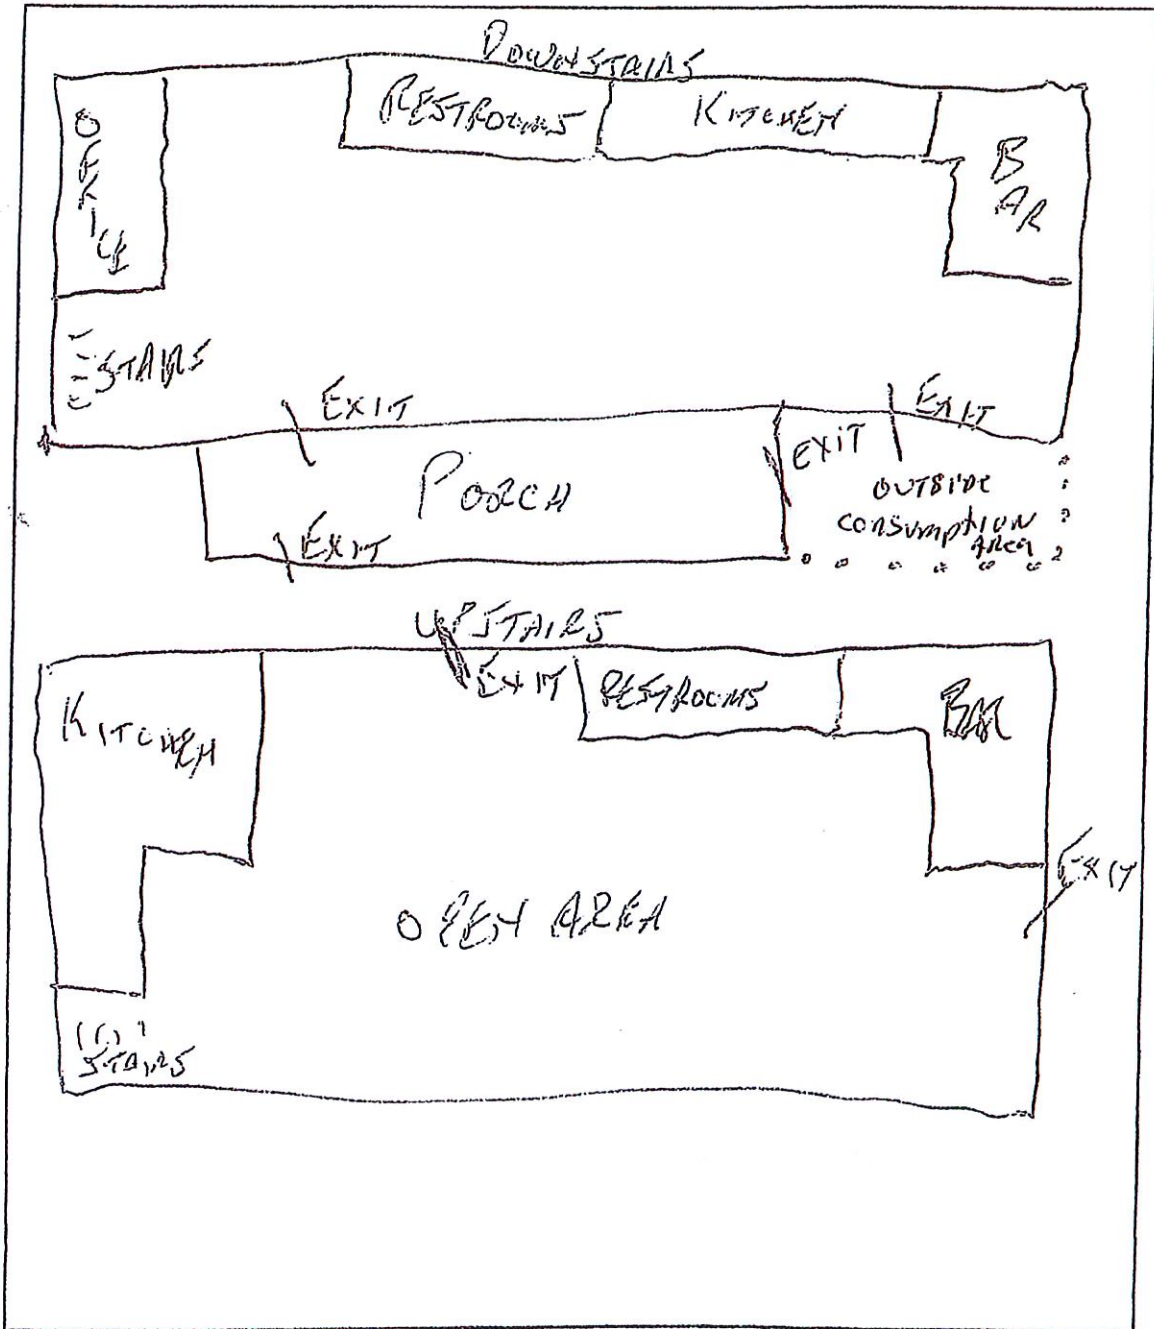 DOWNSTAIRS
OFFICE
RESTROOMS
KITCHEN
BAR
STAIRS
EXIT
EXIT
EXIT
PORCH
OUTSIDE
CONSUMPTION
AREA
EXIT
UPSTAIRS
KITCHEN
EXIT
RESTROOMS
BAR
EXIT
OPEN AREA
STAIRS